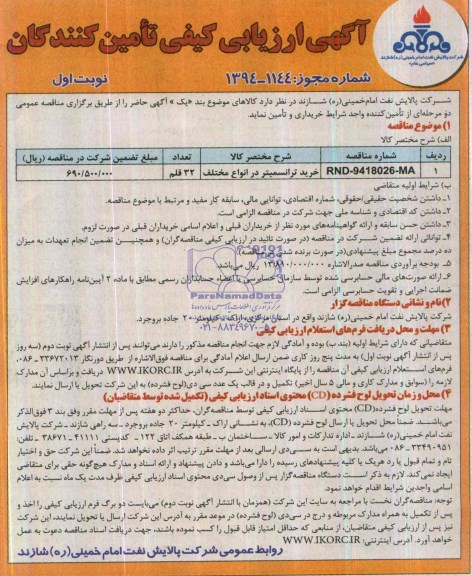 آگهی ارزیابی کیفی تأمین کنندگان
شرکت پالایش نفت امام خمینی(ره) شازند
شماره مجوز: ۱۱۴۴-۱۳۹۴
نوبت اول
شرکت پالایش نفت امام‌خمینی(ره) شازند در نظر دارد کالاهای موضوع بند «یک» آگهی حاضر را از طریق برگزاری مناقصه عمومی
دو مرحله‌ای از تأمین‌کننده واجد شرایط خریداری و تأمین نماید.
۱) موضوع مناقصه
الف) شرح مختصر کالا
ردیف شماره مناقصه شرح مختصر کالا تعداد مبلغ تضمین شرکت در مناقصه (ریال)
۱ RND-9418026-MA خرید ترانسمیتر در انواع مختلف ۳۲ قلم ۶۹۰/۵۰۰/۰۰۰
ب) شرایط اولیه متقاضی
۱ـ داشتن شخصیت حقیقی/حقوقی، شماره اقتصادی، توانایی مالی، سابقه کار مفید و مرتبط با موضوع مناقصه.
۲ـ داشتن کد اقتصادی و شناسه ملی جهت شرکت در مناقصه الزامی است.
۳ـ داشتن حسن سابقه و ارائه گواهینامه‌های مورد نظر از خریداران قبلی و اعلام اسامی خریداران قبلی در صورت لزوم.
۴ـ توانائی ارائه تضمین شرکت در مناقصه (در صورت تائید در ارزیابی کیفی مناقصه‌گران) و همچنین تضمین انجام تعهدات به میزان
ده درصد مجموع مبلغ پیشنهادی (در صورت برنده شدن در مناقصه)
۵ـ بودجه برآوردی مناقصه صدرالاشاره ریال می‌باشد.
۶ـ ارائه صورت‌های مالی حسابرسی شده توسط سازمان حسابرسی یا اعضاء حسابداران رسمی مطابق با ماده ۲ آیین‌نامه راهکارهای افزایش
ضمانت اجرایی و تقویت حسابرسی الزامی است.
۲) نام و نشانی دستگاه مناقصه‌گزار
شرکت پالایش نفت امام خمینی(ره) شازند واقع در استان مرکزی ـ اراک ـ کیلومتر ۲۰ جاده بروجرد.
۳) مهلت و محل دریافت فرم‌های استعلام ارزیابی کیفی
متقاضیانی که دارای شرایط اولیه (بند ب) بوده و آمادگی لازم جهت انجام مناقصه مذکور را دارند می‌توانند پس از انتشار آگهی نوبت دوم (سه روز
پس از انتشار آگهی نوبت اول) به مدت پنج روز کاری ضمن ارسال اعلام آمادگی برای مناقصه فوق‌الاشاره از طریق دورنگار ۳۳۶۷۲۰۱۳-۰۸۶
فرم‌های استعلام ارزیابی کیفی آن مناقصه را از پایگاه اینترنتی این شرکت به آدرس WWW.IKORC.IR دریافت و براساس آن مدارک
لازمه را (سوابق و مدارک کاری و مالی ۵ سال اخیر) تکمیل و در قالب یک عدد سی دی (لوح فشرده) به این شرکت تحویل یا ارسال نمایند.
۴) محل و زمان تحویل لوح فشرده (CD) محتوی اسناد ارزیابی کیفی (تکمیل شده توسط متقاضیان)
مهلت تحویل لوح فشرده(CD) محتوی اسناد ارزیابی کیفی توسط مناقصه‌گران، حداکثر دو هفته پس از مهلت مقرر وفق بند ۳ فوق‌الذکر
می‌باشد. ضمناً محل تحویل یا ارسال لوح فشرده (CD)، به نشانی اراک ـ کیلومتر ۲۰ جاده بروجرد ـ سه راهی شازند ـ شرکت پالایش
نفت امام خمینی(ره) شازند ـ اداره تدارکات و امور کالا ـ ساختمان ب ـ طبقه همکف اتاق ۱۲۲ ـ کدپستی ۴۱۱۱۱-۳۸۶۷۱ ـ تلفن:
۳۳۴۹۰۹۵۱-۰۸۶ می‌باشد. بدیهی است به سی‌دی ارسالی بعد از مهلت مقرر ترتیب اثر داده نخواهد شد. ضمناً این شرکت حق و اختیار
تام و تمام قبول یا رد هریک یا کلیه پیشنهادهای رسیده را دارا می‌باشد و دادن پیشنهاد و ارائه اسناد و مدارک هیچ‌گونه حقی برای متقاضی
ایجاد نمی‌کند. لازم به ذکر است دستگاه مناقصه‌گزار پس از وصول سی‌دی محتوی اسناد ارزیابی کیفی ظرف مدت یک ماه نسبت به اعلام
اسامی واجدین شرایط اقدام خواهد نمود.
توجه: مناقصه‌گران نخست با مراجعه به سایت این شرکت (همزمان با انتشار آگهی نوبت دوم) می‌بایست دو برگ فرم ارزیابی کیفی را اخذ و
پس از تکمیل به همراه مدارک مربوطه و درج در سی‌دی (لوح فشرده) در موعد مقرر به آدرس این شرکت ارسال یا تحویل نمایند، این شرکت
نیز پس از ارزیابی کیفی متقاضیان، از منابعی که حداقل امتیاز قابل قبول را کسب نموده باشند، جهت دریافت اسناد مناقصه دعوت به عمل
خواهد آورد. آدرس اینترنتی: WWW.IKORC.IR
روابط عمومی شرکت پالایش نفت امام خمینی (ره) شازند
ParsNamadData
۰۲۱-۸۸۳۴۹۶۷۰